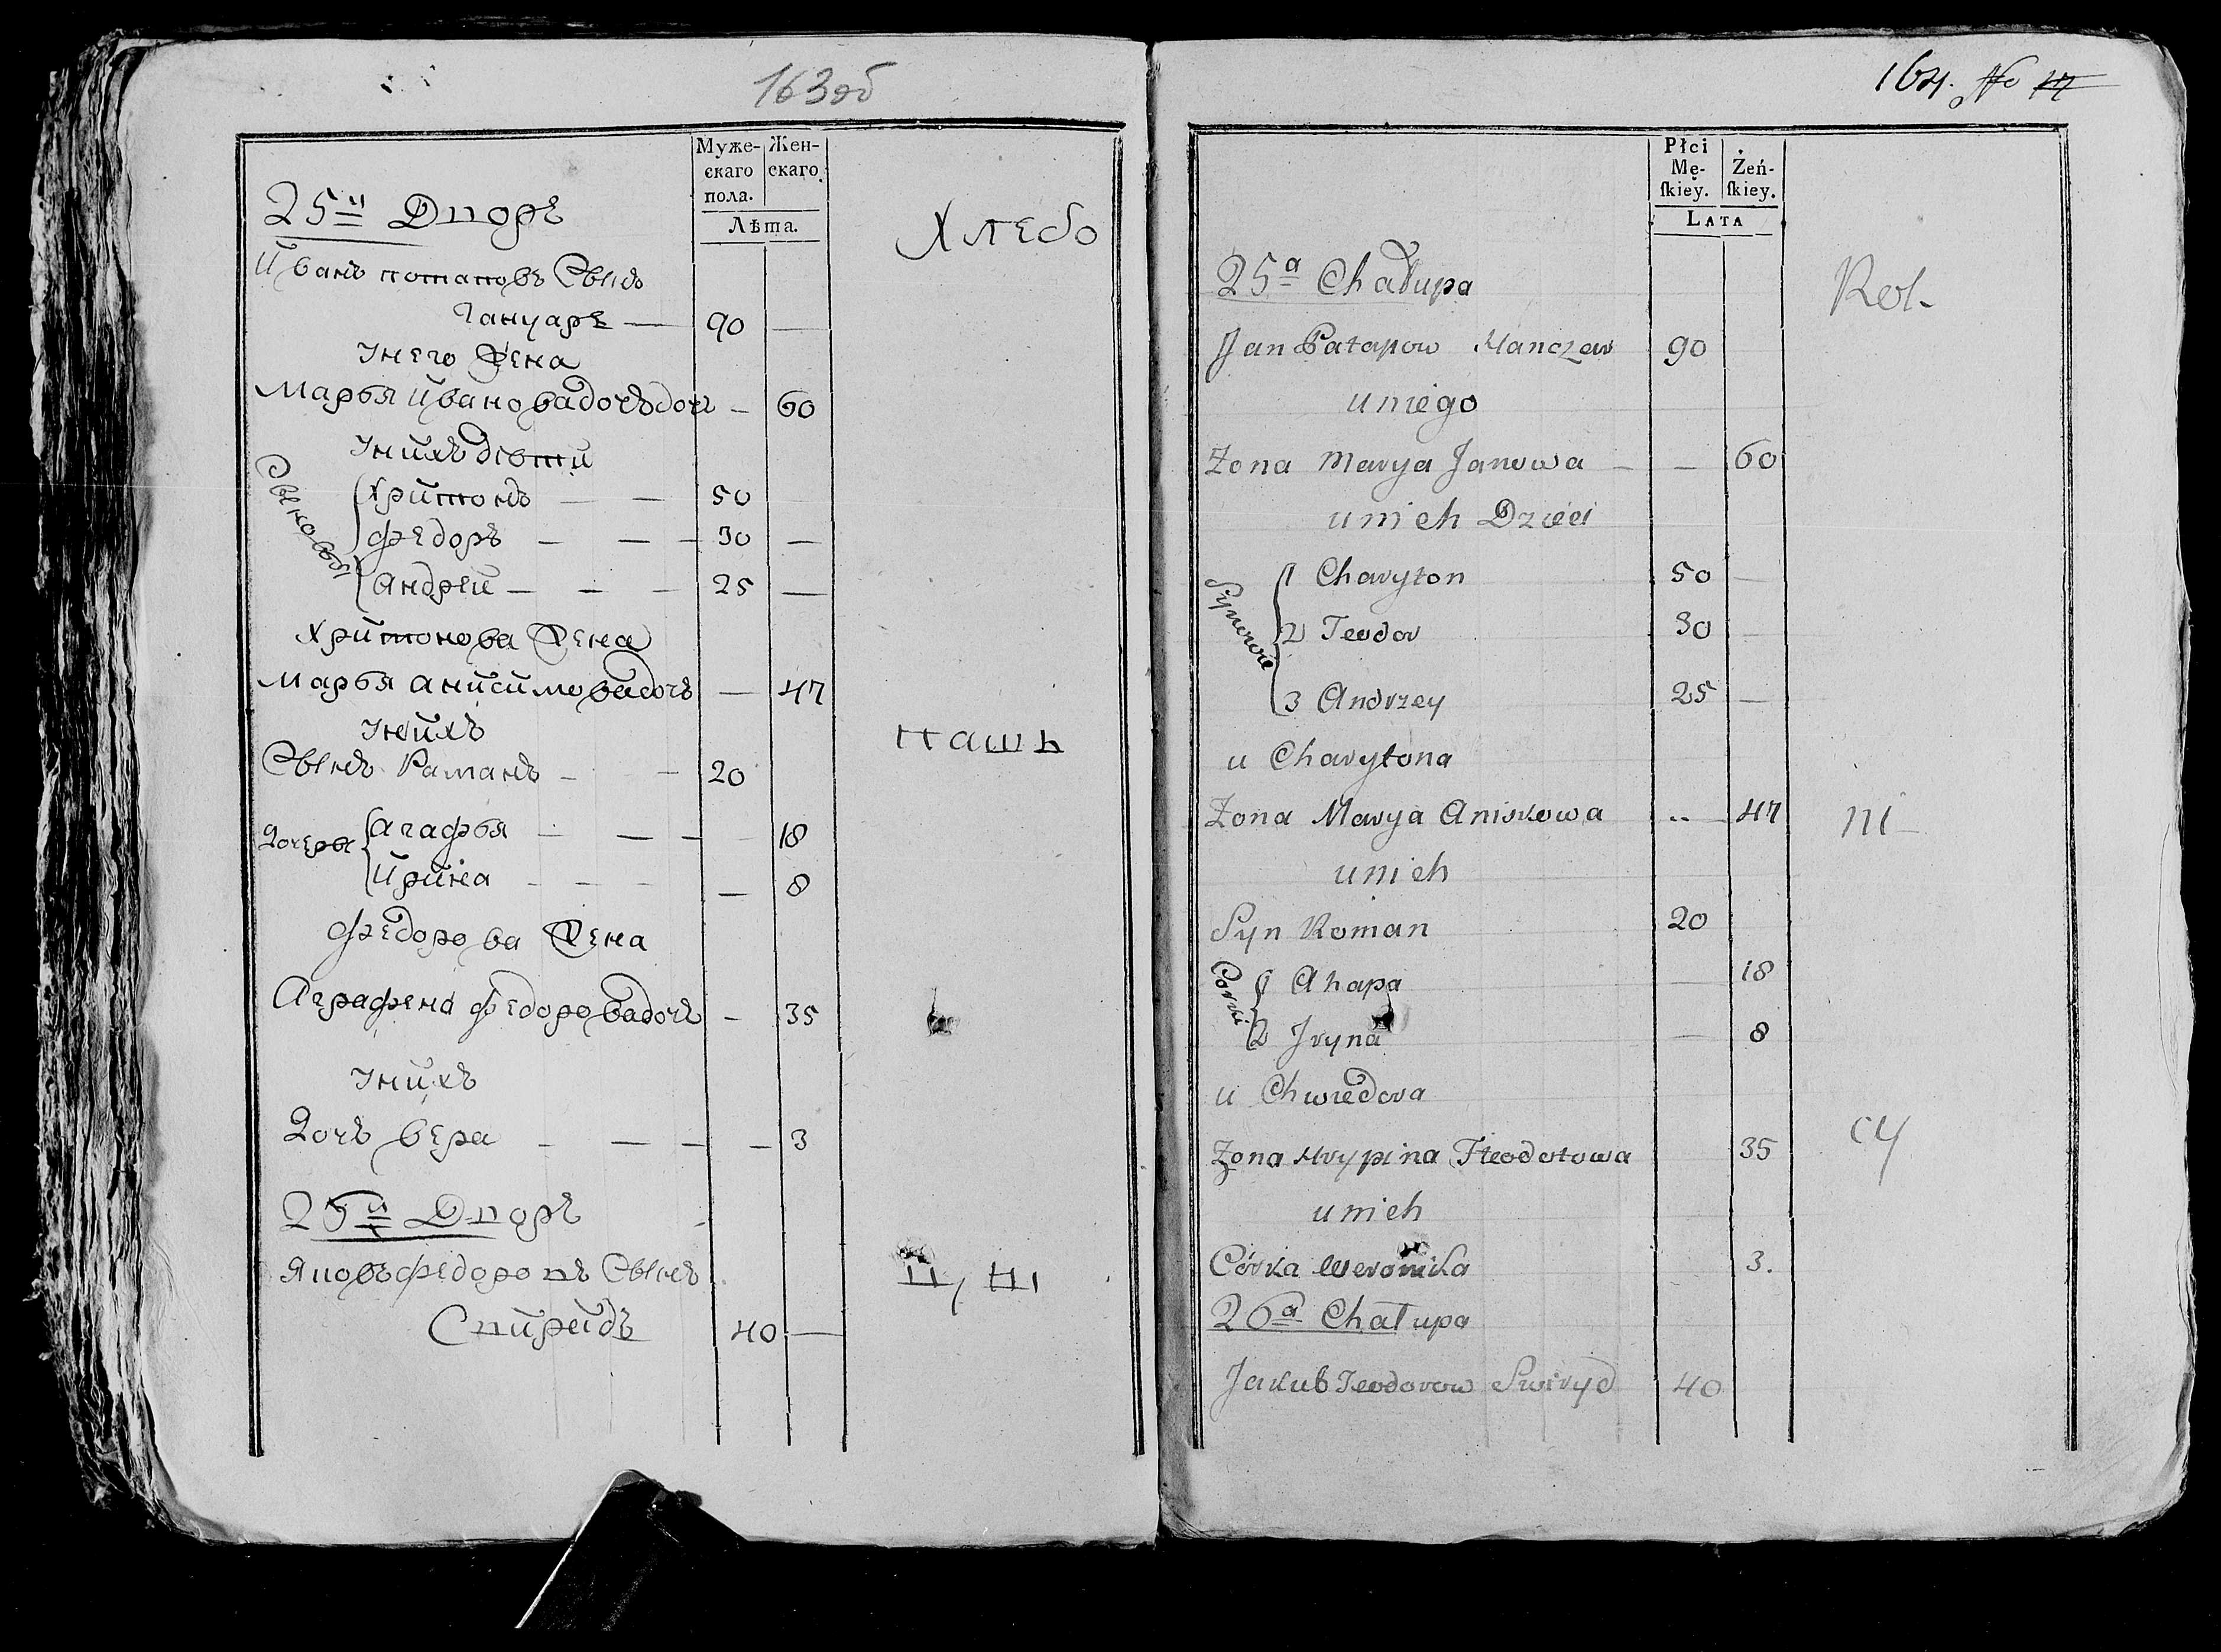 163об
Муже-
скаго
пола.
Жен-
скаго
Лѣта.
25й Дворъ
Хлебо
Иванъ потаповъ Сынъ
Ганчаръ — 90 —
Унего Жена
Марья Ивановадочь дочь — 60
Унихъ дѣти
Сыновья
Хритонъ — — 50
Федоръ — — — 30 —
Андрей — — — 25 —
Хритонова Жена
Марья анисимовадочь — 47
пашъ
Унихъ
Сынъ Раманъ — — 20
Дочеры
Агафья — — — 18
Ирина — — — — 8
Федорова Жена
Аграфена федоровадочь — 35
Унихъ
Дочъ вера — — — — 3
Дворъ
цы
Яковъ федоровъ Сынъ
Спиридъ 40 —
164. No
Płci
Mę-
skiey.
Żeń-
skiey.
LATA
25a Chałupa
Rol-
Jan Patapow Hanczar 90
uniego
Zona Marya Janowa — — 60
unich Dzieci
Synowie
1 Charyton 50 —
2 Teodor 30 —
3 Andrzey 25 —
u Charytona
Zona Marya Aniskowa — 47
ni-
unich
Syn Roman 20
Corki
1 Ahapa — 18
2 Iryna — 8
u Chwiedora
Zona Hrypina Fteodotowa 35
cy
unich
Córka Weronika 3.
26a Chałupa
Jakub Teodorow Swiryd 40